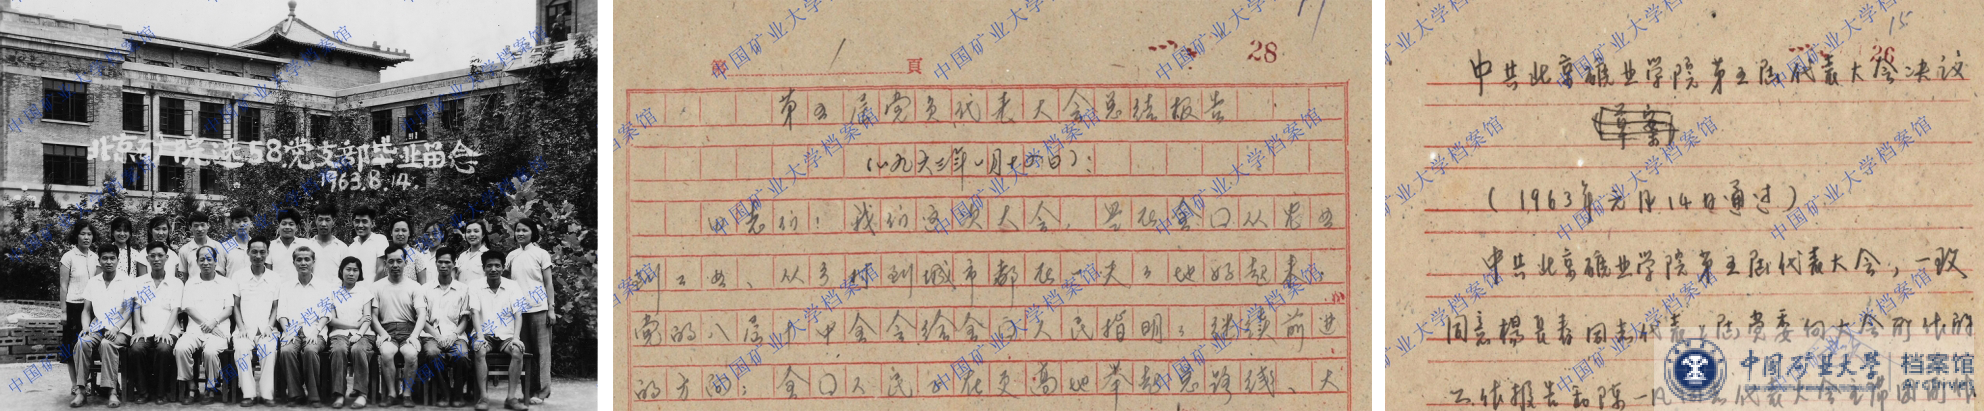 北京矿院选58党支部毕业留念
1963.8.14.
第 1 頁
28
第五届党员代表大会总结报告
(一九六三年一月十五日):
同志们:我们这次大会,是在全国从农业
到工业、从乡村到城市都在一天天地好起来,
党的八届十中全会给全国人民指明了继续前进
的方向;全国人民正在更高地举起总路线、大
15
26
中共北京矿业学院第五届代表大会决议
草案
(1963年元月14日通过)
中共北京矿业学院第五届代表大会,一致
同意杨长春同志代表上届党委向大会所作的
工作报告和陈一凡同志代表大会主席团所作
中国矿业大学 档案馆
Archives
中国矿业大学档案馆